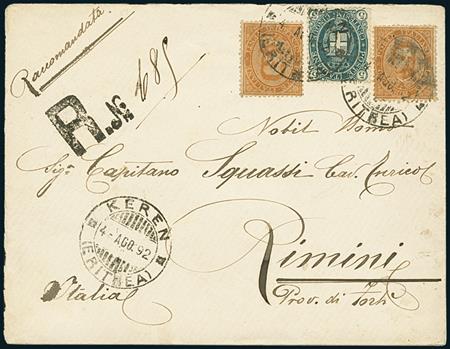 Raccomandata
R. No 685
Nobil Uomo
Sigr Capitano Squassi Cav. Enrico
Rimini
Prov. di Forlì
Italia
KEREN
4-AGO.92
(ERITREA)